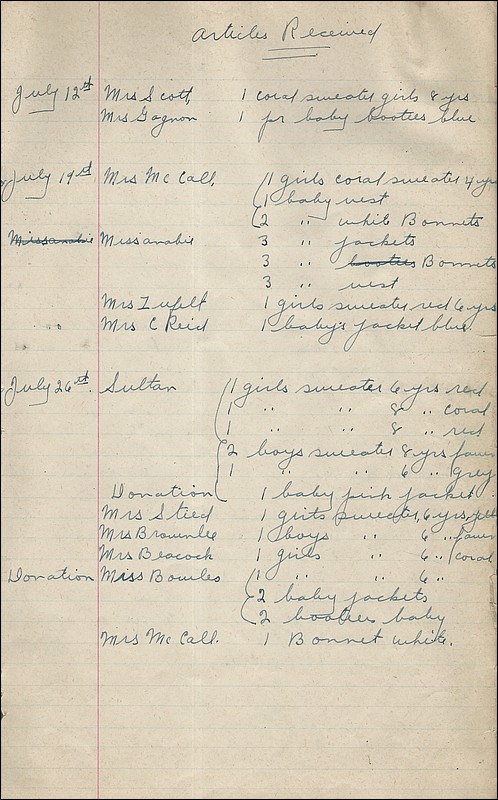 Articles Received
July 12th Mrs Scott, 1 coral sweater girls 8 yrs
Mrs Gagnon 1 pr baby booties blue
July 19th Mrs McCall, 1 girls coral sweater 4 yrs
1 baby vest
2 " white Bonnets
Missanabie Missanabie 3 " jackets
3 " booties Bonnets
3 " vest
1 girls sweater red 6 yrs
Mrs C Reid 1 baby's jacket blue.
July 26th. Sultan 1 girls sweater 6 yrs red
1 " " 8 " coral
1 " " 8 " red
2 boys sweater 8 yrs fawn
1 " " 6 " grey
Donation 1 baby pink jacket
Mrs Steed 1 girls sweater, 6 yrs,
Mrs Brownlee 1 boys " 6 " fawn
Mrs Beacock 1 girls " 6 " coral
Donation Miss Bowles 1 " " 6 "
2 baby jackets
2 booties baby
Mrs McCall. 1 Bonnet white.